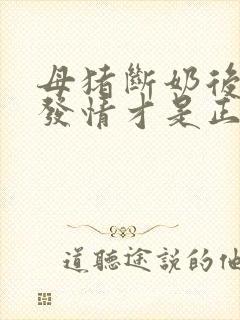 母猪斷奶後
發情才是正
道聽途説的他